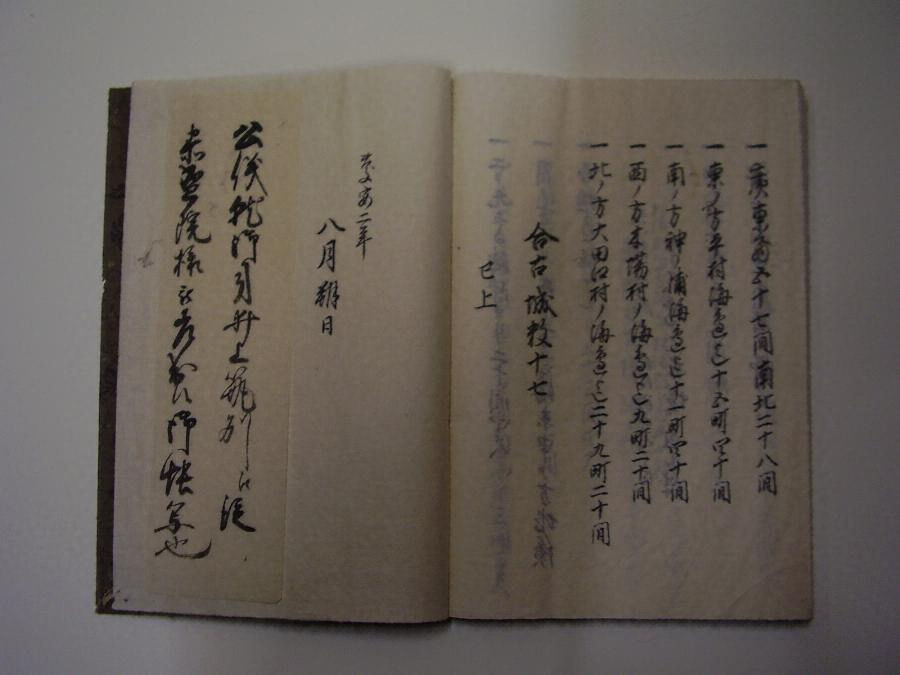 一 廣東西五十七間南北二十八間
一 東ノ方平村海邊迄十五町四十間
一 南ノ方神ノ浦海邊迄十一町四十間
一 西ノ方木場村ノ海邊迄九町二十間
一 北ノ方大田口村ノ海邊迄二十九町二十間
合古城数十七
已上
慶安二年
八月朔日
公儀 井上筑後
院様 御帳写也